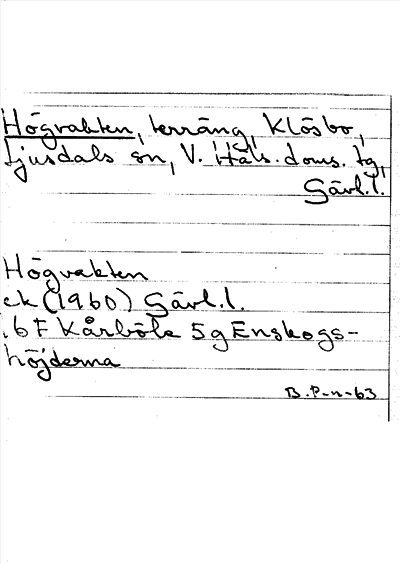 Högvakten, terräng, Klösbo,
Ljusdals sn, V. Häls. doms. tg,
Gävl. l.
Högvakten
ek (1960) Gävl. l.
.6 F Kårböle 5 g Enskogs-
höjderna
B. P-n-63